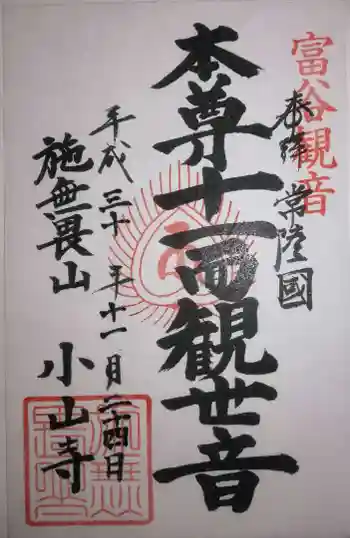 富谷観音
奉拝 常陸國
本尊十一面観世音
平成三十年十一月二四日
施無畏山
小山寺